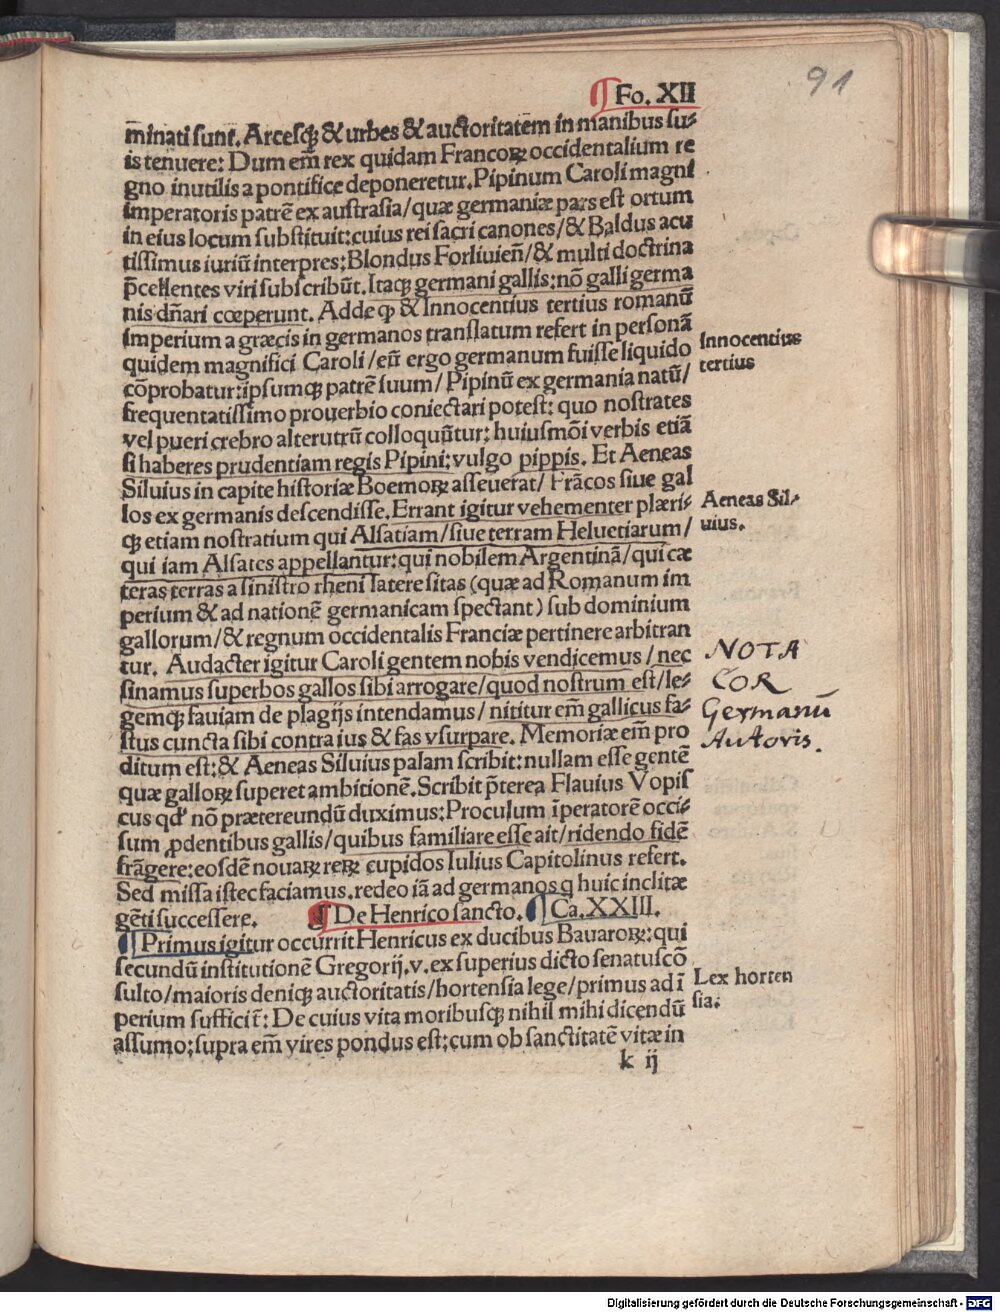 ¶ Fo. XII
91
m̄inati sunt. Arcesq̃ & urbes & auctoritatem in manibus su⸗
is tenuere: Dum em̄ rex quidam Francoꝝ occidentalium re
gno inutilis a pontifice deponeretur. Pipinum Caroli magni
imperatoris patrē ex austrasia/quæ germaniæ pars est ortum
in eius locum substituit: cuius rei sacri canones/& Baldus acu
tissimus iuriū interpres: Blondus Forliuieñ/& multi doctrina
p̄cellentes viri subscribūt. Itaq̃ germani gallis: nō galli germa
nis dñari cœperunt. Adde ꝙ & Innocentius tertius romanū
imperium a græcis in germanos translatum refert in personā
quidem magnifici Caroli/eū ergo germanum fuisse liquido
cōprobatur: ipsumq̃ patrē suum/ Pipinū ex germania natū/
frequentatissimo prouerbio coniectari potest: quo nostrates
vel pueri crebro alterutrū colloquūtur: huiusmōi verbis etiā
si haberes prudentiam regis Pipini: vulgo pippis. Et Aeneas
Siluius in capite historiæ Boemoꝝ asseuerat/ Frācos siue gal
los ex germanis descendisse. Errant igitur vehementer plæri⸗
q̃ etiam nostratium qui Alsatiam/siue terram Heluetiarum/
qui iam Alsates appellantur: qui nobilem Argentinā/qui cæ
teras terras a sinistro rheni latere sitas (quæ ad Romanum im
perium & ad nationē germanicam spectant) sub dominium
gallorum/& regnum occidentalis Franciæ pertinere arbitran
tur. Audacter igitur Caroli gentem nobis vendicemus/nec
sinamus superbos gallos sibi arrogare/quod nostrum est/le⸗
gemq̃ fauiam de plagijs intendamus/ nititur em̄ gallicus fa⸗
stus cuncta sibi contra ius & fas vsurpare. Memoriæ em̄ pro
ditum est: & Aeneas Siluius palam scribit: nullam esse gentē
quæ galloꝝ superet ambitionē. Scribit p̄terea Flauius Vopis
cus qđ nō prætereundū duximus: Proculum īperatorē occi⸗
sum ꝓdentibus gallis/quibus familiare esse ait/ridendo fidē
frāgere: eosdē nouaꝝ reꝝ cupidos Iulius Capitolinus refert.
Sed missa istec faciamus. redeo iā ad germanos q huic inclitæ
gēti successere. ¶ De Henrico sancto. ¶ Ca. XXIII.
¶ Primus igitur occurrit Henricus ex ducibus Bauaroꝝ: qui
secundū institutionē Gregorij. v. ex superius dicto senatuscō
sulto/maioris deniq̃ auctoritatis/hortensia lege/primus ad ī
perium sufficit̄: De cuius vita moribusq̃ nihil mihi dicendū
assumo: supra em̄ vires pondus est: cum ob sanctitatē vitæ in
k ij
Innocentius
tertius
Aeneas Sil⸗
uius.
NOTA
COR
Germanū
Autoris.
Lex horten
sia:
Digitalisierung gefördert durch die Deutsche Forschungsgemeinschaft - DFG